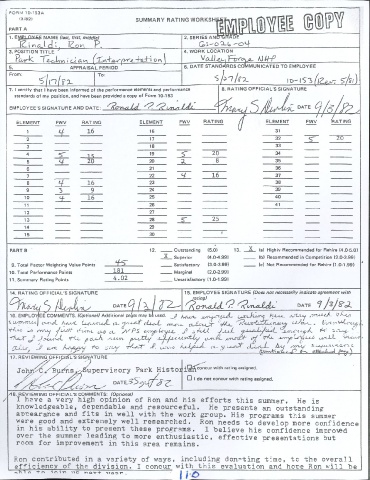 FORM 10-153A
(9/82)
SUMMARY RATING WORKSHEET
EMPLOYEE COPY
PART A
1. EMPLOYEE NAME (last, first, initial)
Rinaldi, Ron P.
2. SERIES AND GRADE
GS-026-04
3. POSITION TITLE
Park Technician (Interpretation)
4. WORK LOCATION
Valley Forge NHP
5. APPRAISAL PERIOD
From: To:
5/17/82
6. DATE STANDARDS COMMUNICATED TO EMPLOYEE
5/27/82 10-153 (Rev. 5/81)
7. I certify that I have been informed of the performance elements and performance
standards of my position, and have been provided a copy of Form 10-153
EMPLOYEE'S SIGNATURE AND DATE - Ronald P. Rinaldi
8. RATING OFFICIAL'S SIGNATURE
DATE 9/3/82
ELEMENT FWV RATING ELEMENT FWV RATING ELEMENT FWV RATING
1 4 16 16 31
2 17 32 5 20
3 18 33
4 5 15 19 5 20 34
5 4 20 20 2 8 35
6 21 36
7 22 4 16 37
8 4 16 23 38
9 3 9 24 39
10 4 16 25 40
11 26 41
12 27
13 28 5 25
14 29
15 30
PART B
9. Total Factor Weighting Value Points 45
10. Total Performance Points 181
11. Summary Rating Points 4.02
12. Outstanding (5.0)
X Superior (4.0-4.99)
Satisfactory (3.0-3.99)
Marginal (2.0-2.99)
Unsatisfactory (1.0-1.99)
13. X (a) Highly Recommended for Rehire (4.0-5.0)
(b) Recommended in Competition (3.0-3.99)
(c) Not Recommended for Rehire (1.0-2.99)
14. RATING OFFICIAL'S SIGNATURE
DATE 9/3/82
15. EMPLOYEE'S SIGNATURE (Does not necessarily indicate agreement with rating)
Ronald P. Rinaldi 9/3/82
16. EMPLOYEE COMMENTS. (Optional) Additional page may be used. I have enjoyed working here very much this
summer and have learned a great deal more about the Revolutionary War.
17. REVIEWING OFFICIAL'S SIGNATURE
John C. Burns, Supervisory Park Historian
DATE
I concur with rating assigned.
I do not concur with rating assigned.
18. REVIEWING OFFICIAL'S COMMENTS: (Optional)
I have a very high opinion of Ron and his efforts this summer. He is
knowledgeable, dependable and resourceful. He presents an outstanding
appearance and fits in well with the work group. His programs this summer
were good and extremely well researched. Ron needs to develop more confidence
in his ability to present these programs. I believe his confidence improved
over the summer leading to more enthusiastic, effective presentations but
room for improvement in this area remains.
Ron contributed in a variety of ways, including donating time, to the overall
efficiency of the division. I concur with this evaluation and hope Ron will be
able to join us next year.
110